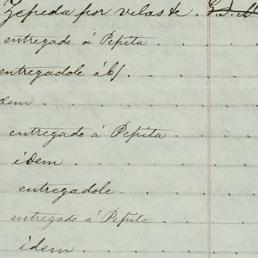 Zepeda por velas &c.
entregado á Pepita
entregadole á
idem
entregado á Pepita
idem
entregadole
entregado á Pepita
idem